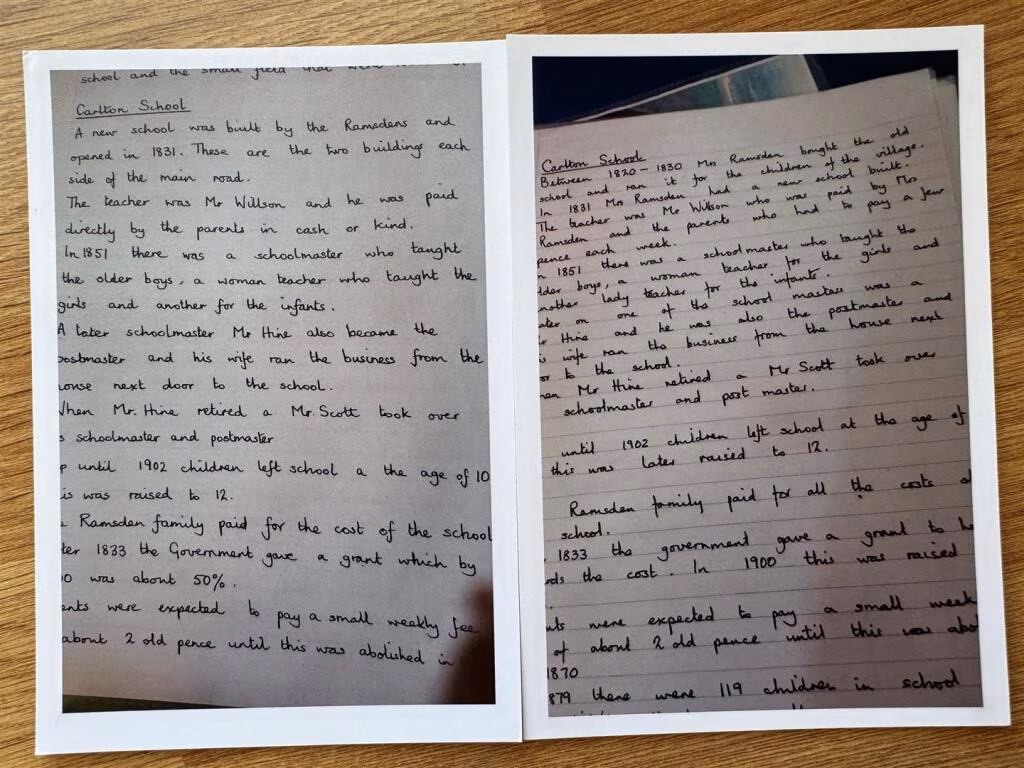 school and the small field that were
Carlton School
A new school was built by the Ramsdens and
opened in 1831. These are the two buildings each
side of the main road.
The teacher was Mr Willson and he was paid
directly by the parents in cash or kind.
In 1851 there was a schoolmaster who taught
the older boys, a woman teacher who taught the
girls and another for the infants.
A later schoolmaster Mr Hine also became the
postmaster and his wife ran the business from the
house next door to the school.
When Mr. Hine retired a Mr. Scott took over
s schoolmaster and postmaster
p until 1902 children left school a the age of 10
is was raised to 12.
e Ramsden family paid for the cost of the school
ter 1833 the Government gave a grant which by
00 was about 50%.
ents were expected to pay a small weekly fee
about 2 old pence until this was abolished in
Carlton School
Between 1820 - 1830 Mrs Ramsden bought the old
school and ran it for the children of the village.
In 1831 Mrs Ramsden had a new school built.
The teacher was Mr Wilson who was paid by Mrs
Ramsden and the parents who had to pay a few
pence each week.
n 1851 there was a schoolmaster who taught the
lder boys, a woman teacher for the girls and
nother lady teacher for the infants.
ater on one of the school masters was a
r Hine and he was also the postmaster and
is wife ran the business from the house next
or to the school.
hen Mr Hine retired a Mr Scott took over
schoolmaster and post master.
until 1902 children left school at the age of
this was later raised to 12.
Ramsden family paid for all the costs o
school.
1833 the government gave a grant to he
rds the cost. In 1900 this was raised
nts were expected to pay a small week
of about 2 old pence until this was abo
1870
879 there were 119 children in school